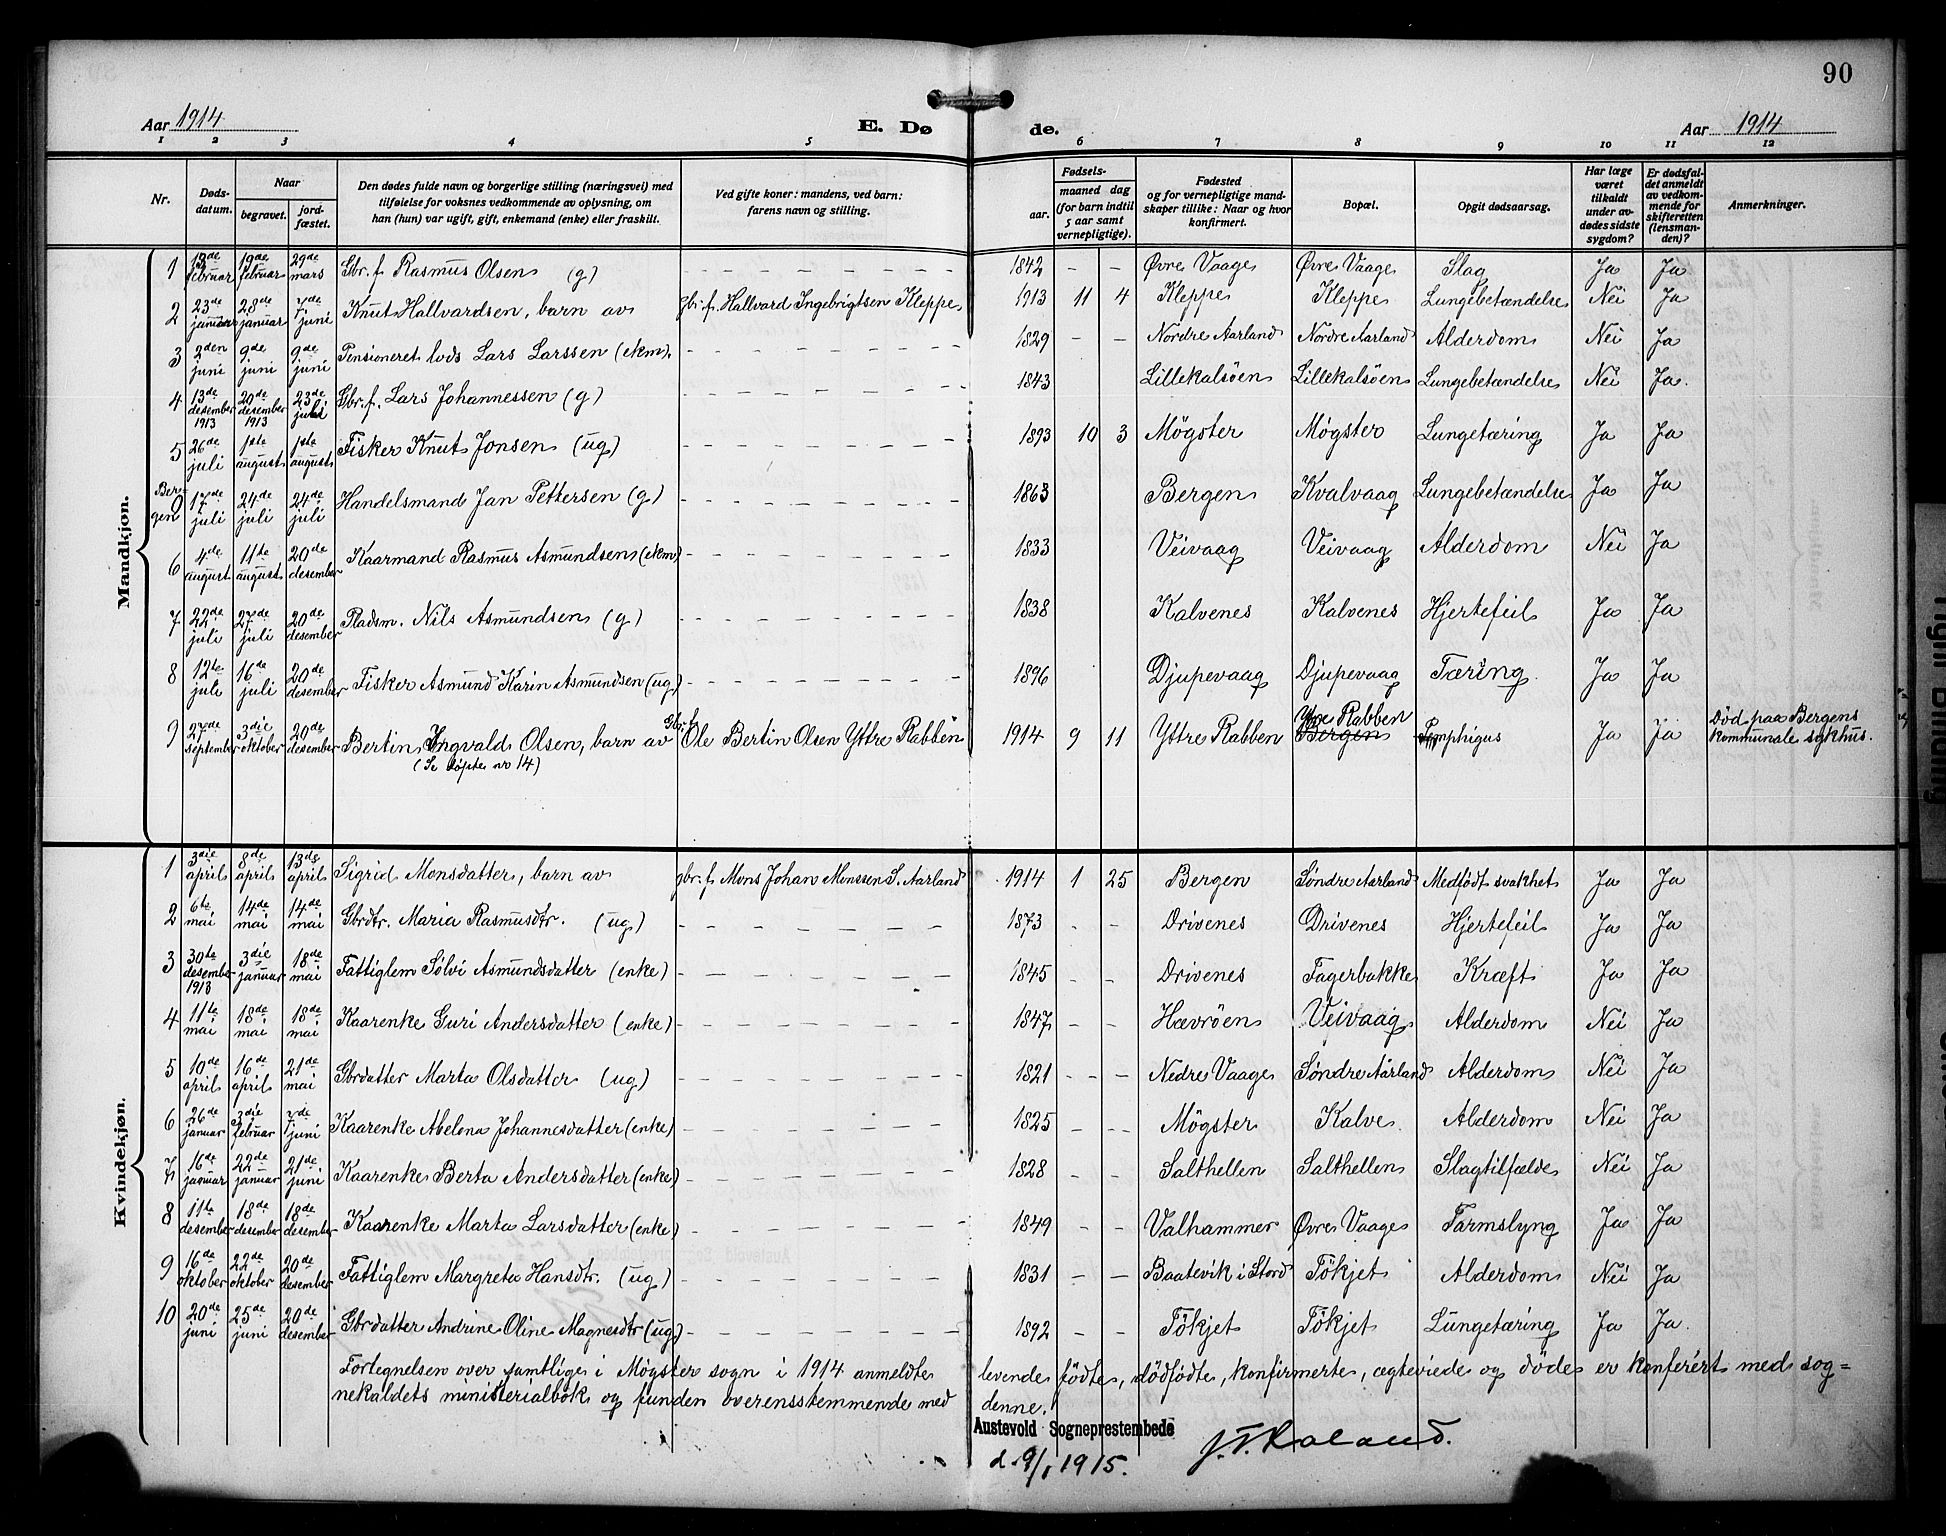 90
Aar 1914
E. Døde.
Aar 1914
1 2 3 4 5 6 7 8 9 10 11 12
Nr.
Døds-
datum.
Naar
begravet.
jord-
fæstet.
Den dødes fulde navn og borgerlige stilling (næringsvei) med
tilføielse for voksnes vedkommende av oplysning, om
han (hun) var ugift, gift, enkemand (enke) eller fraskilt.
Ved gifte koner: mandens, ved barn:
farens navn og stilling.
Fødsels-
aar.
maaned dag
(for barn indtil
5 aar samt
vernepligtige).
Fødested
og for vernepligtige mand-
skaper tillike: Naar og hvor
konfirmert.
Bopæl.
Opgit dødsaarsag.
Har læge
været
tilkaldt
under av-
dødes sidste
sygdom?
Er dødsfal-
det anmeldt
av vedkom-
mende for
skifteretten
(lensman-
den)?
Anmerkninger.
Mandkjøn.
1 13de februar 19de februar 29de mars Gbr. f. Rasmus Olsen (g) 1842 Øvre Vaage Øvre Vaage Slag Ja Ja
2 23de januar 28de januar 7de juni Knut Hallvardsen, barn av gbr. f. Hallvard Ingebrigtsen Kleppe 1913 11 4 Kleppe Kleppe Lungebetændelse Nei Ja
3 2den juni 9de juni 9de juni Pensioneret lods Lars Larssen (ekm). 1829 Nordre Aarland Nordre Aarland Alderdom Nei Ja
4 13de desember 1913 20de desember 1913 23de juli Gbr. f. Lars Johannessen (g) 1843 Lillekalsöen Lillekalsöen Lungebetændelse Nei Ja.
5 26de juli 1ste august 1ste august Fisker Knut Jonsen (ug) 1893 10 3 Møgster Møgster Lungetæring Ja Ja
Ber-
gen 9 17de juli 24de juli 24de juli Handelsmand Jan Pettersen (g) 1863 Bergen Kvalvaag Lungebetændelse Ja Ja
6 4de august 11te august 20de desember Kaarmand Rasmus Asmundsen (ekm) 1833 Veivaag Veivaag Alderdom Nei Ja
7 22de juli 27de juli 20de desember Radsm. Nils Asmundsen (g) 1838 Kalvenes Kalvenes Hjertefeil Ja Ja
8 12te juli 16de juli 20de desember Fisker Asmund Karin Asmundsen (ug) 1896 Djupevaag Djupevaag Tæring Ja Ja
9 27de september 3die oktober 20de desember Bertin Ingvald Olsen, barn av Gbr. f. Ole Bertin Olsen Yttre Rabben 1914 9 11 Yttre Rabben Ytre Rabben Bergen Pemphigus Ja Ja Død paa Bergens
kommunale sykhus.
(Se döpte no 14)
Kvindekjøn.
1 3die april 8de april 13de april Sigrid Monsdatter, barn av gbr. f. Mons Johan Monssen S. Aarland 1914 1 25 Bergen Søndre Aarland Medfödt svakhet Ja Ja
2 6te mai 14de mai 14de mai Gbrdtr. Maria Rasmusdtr. (ug) 1873 Drivenes Drivenes Hjertefeil Ja Ja
3 30te desember 1913 3die januar 18de mai Fattiglem Sölvi Asmundsdatter (enke) 1845 Drivenes Fagerbakke Kræft Ja Ja
4 11te mai 18de mai 18de mai Kaarenke Guri Andersdatter (enke) 1847 Hævröen Veivaag Alderdom Nei Ja
5 10de april 16de april 21de mai Gbrdatter Marta Olsdatter (ug) 1821 Nedre Vaage Søndre Aarland Alderdom Nei Ja
6 26de januar 3die februar 7de juni Kaarenke Abelona Johannesdatter (enke) 1825 Møgster Kalve Alderdom Nei Ja
7 16de januar 22de januar 21de juni Kaarenke Berta Andersdatter (enke) 1828 Salthellen Salthellen Slagtilfælde Nei Ja
8 11te desember 18de desember 18de desember Kaarenke Marta Larsdatter (enke) 1849 Valhammer Øvre Vaage Tarmslyng Ja Ja
9 16de oktober 22de oktober 20de desember Fattiglem Margreta Hansdtr. (ug) 1831 Baatevik i Stord Tökjet Alderdom Nei Ja
10 20de juni 25de juni 20de desember Gbrdatter Andrine Oline Magnesdtr (ug) 1892 Tökjet Tökjet Lungetæring Ja Ja.
Fortegnelsen over samtlige i Møgster sogn i 1914 anmeldte levende fødte, dödfödte, konfirmerte, ægteviede og döde er konferert med sog=
nekaldets ministerialbok og funden overensstemmende med denne.
Austevold Sogneprestembede
d. 9/1 1915.